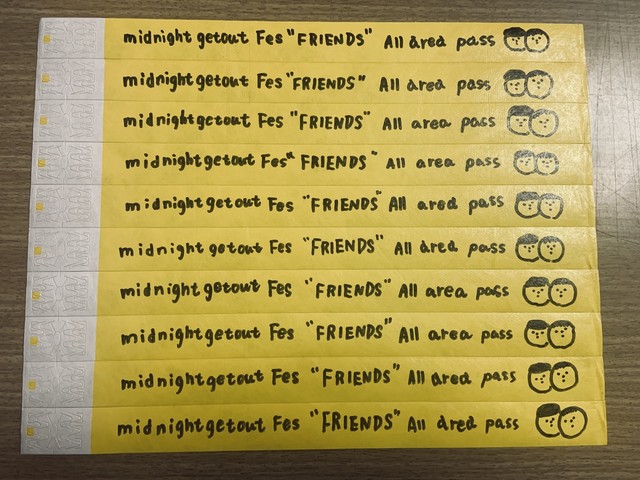 midnight getout Fes "FRIENDS" All area pass
midnight getout Fes "FRIENDS" All area pass
midnight getout Fes "FRIENDS" All area pass
midnight getout Fes "FRIENDS" All area pass
midnight getout Fes "FRIENDS" All area pass
midnight getout Fes "FRIENDS" All area pass
midnight getout Fes "FRIENDS" All area pass
midnight getout Fes "FRIENDS" All area pass
midnight getout Fes "FRIENDS" All area pass
midnight getout Fes "FRIENDS" All area pass